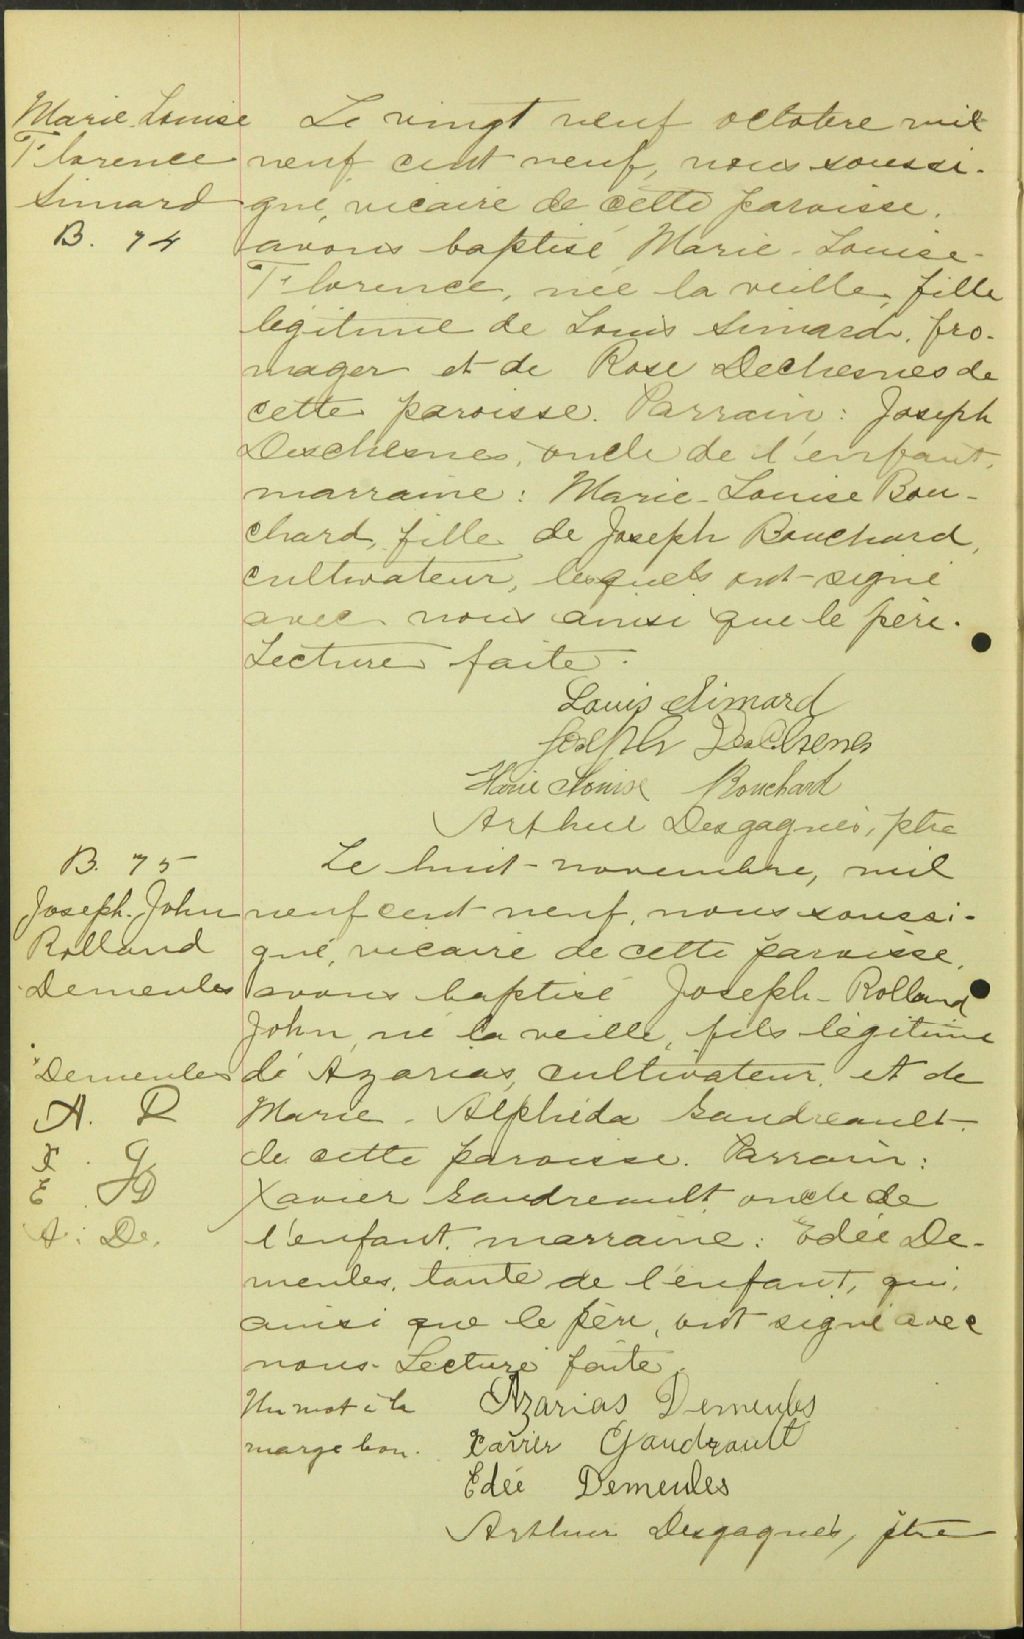 Marie Louise
Florence
Simard
B. 74
Le vingt neuf octobre mil
neuf cent neuf, nous soussi-
gné, vicaire de cette paroisse,
avons baptisé Marie-Louise-
Florence, née la veille, fille
légitime de Louis Simard, fro-
mager et de Rose Dechesnes de
cette paroisse. Parrain : Joseph
Deschesnes, oncle de l'enfant,
marraine : Marie-Louise Bou-
chard, fille de Joseph Bouchard,
cultivateur, lesquels ont signé
avec nous ainsi que le père.
Lecture faite.
Louis Simard
Joseph DesChenes
Marie Louise Bouchard
Arthur Desgagnés, ptre
B. 75
Joseph-John
Rolland
Demeules
Le huit novembre, mil
neuf cent neuf, nous soussi-
gné, vicaire de cette paroisse,
avons baptisé Joseph-Rolland
John, né la veille, fils légitime
de Azarias, cultivateur, et de
Marie-Alphéda Gaudreault
de cette paroisse. Parrain :
Xavier Gaudreault oncle de
l'enfant, marraine : Edée De-
meules, tante de l'enfant, qui,
ainsi que le père, ont signé avec
nous. Lecture faite.
Demeules
A. D
X. G
E. D
A. De.
Un mot à la
marge bon.
Azarias Demeules
Xavier Gaudrault
Edée Demeules
Arthur Desgagnés, ptre